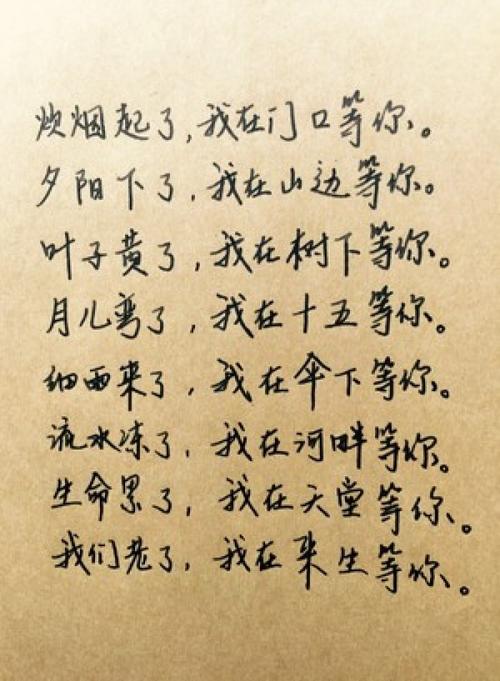 炊烟起了,我在门口等你。
夕阳下了,我在山边等你。
叶子黄了,我在树下等你。
月儿弯了,我在十五等你。
细雨来了,我在伞下等你。
流水冻了,我在河畔等你。
生命累了,我在天堂等你。
我们老了,我在来生等你。